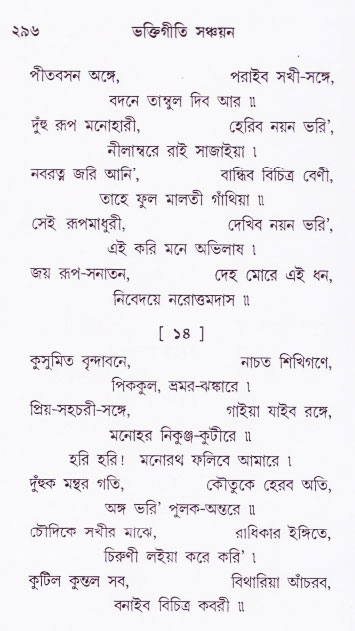 ২৯৬ ভক্তিগীতি সঞ্চয়ন
পীতবসন অঙ্গে, পরাইব সখী-সঙ্গে,
বদনে তাম্বুল দিব আর ॥
দুঁহু রূপ মনোহারী, হেরিব নয়ন ভরি',
নীলাম্বরে রাই সাজাইয়া ।
নবরত্ন জরি আনি', বান্ধিব বিচিত্র বেণী,
তাহে ফুল মালতী গাঁথিয়া ॥
সেই রূপমাধুরী, দেখিব নয়ন ভরি',
এই করি মনে অভিলাষ ।
জয় রূপ-সনাতন, দেহ মোরে এই ধন,
নিবেদয়ে নরোত্তমদাস ॥
[ ১৪ ]
কুসুমিত বৃন্দাবনে, নাচত শিখিগণে,
পিককুল, ভ্রমর-ঝঙ্কারে ।
প্রিয়-সহচরী-সঙ্গে, গাইয়া যাইব রঙ্গে,
মনোহর নিকুঞ্জ-কুটীরে ॥
হরি হরি! মনোরথ ফলিবে আমারে ।
দুঁহুক মন্থর গতি, কৌতুকে হেরব অতি,
অঙ্গ ভরি' পুলক-অন্তরে ॥
চৌদিকে সখীর মাঝে, রাধিকার ইঙ্গিতে,
চিরুণী লইয়া করে করি' ।
কুটিল কুন্তল সব, বিথারিয়া আঁচরব,
বনাইব বিচিত্র কবরী ॥